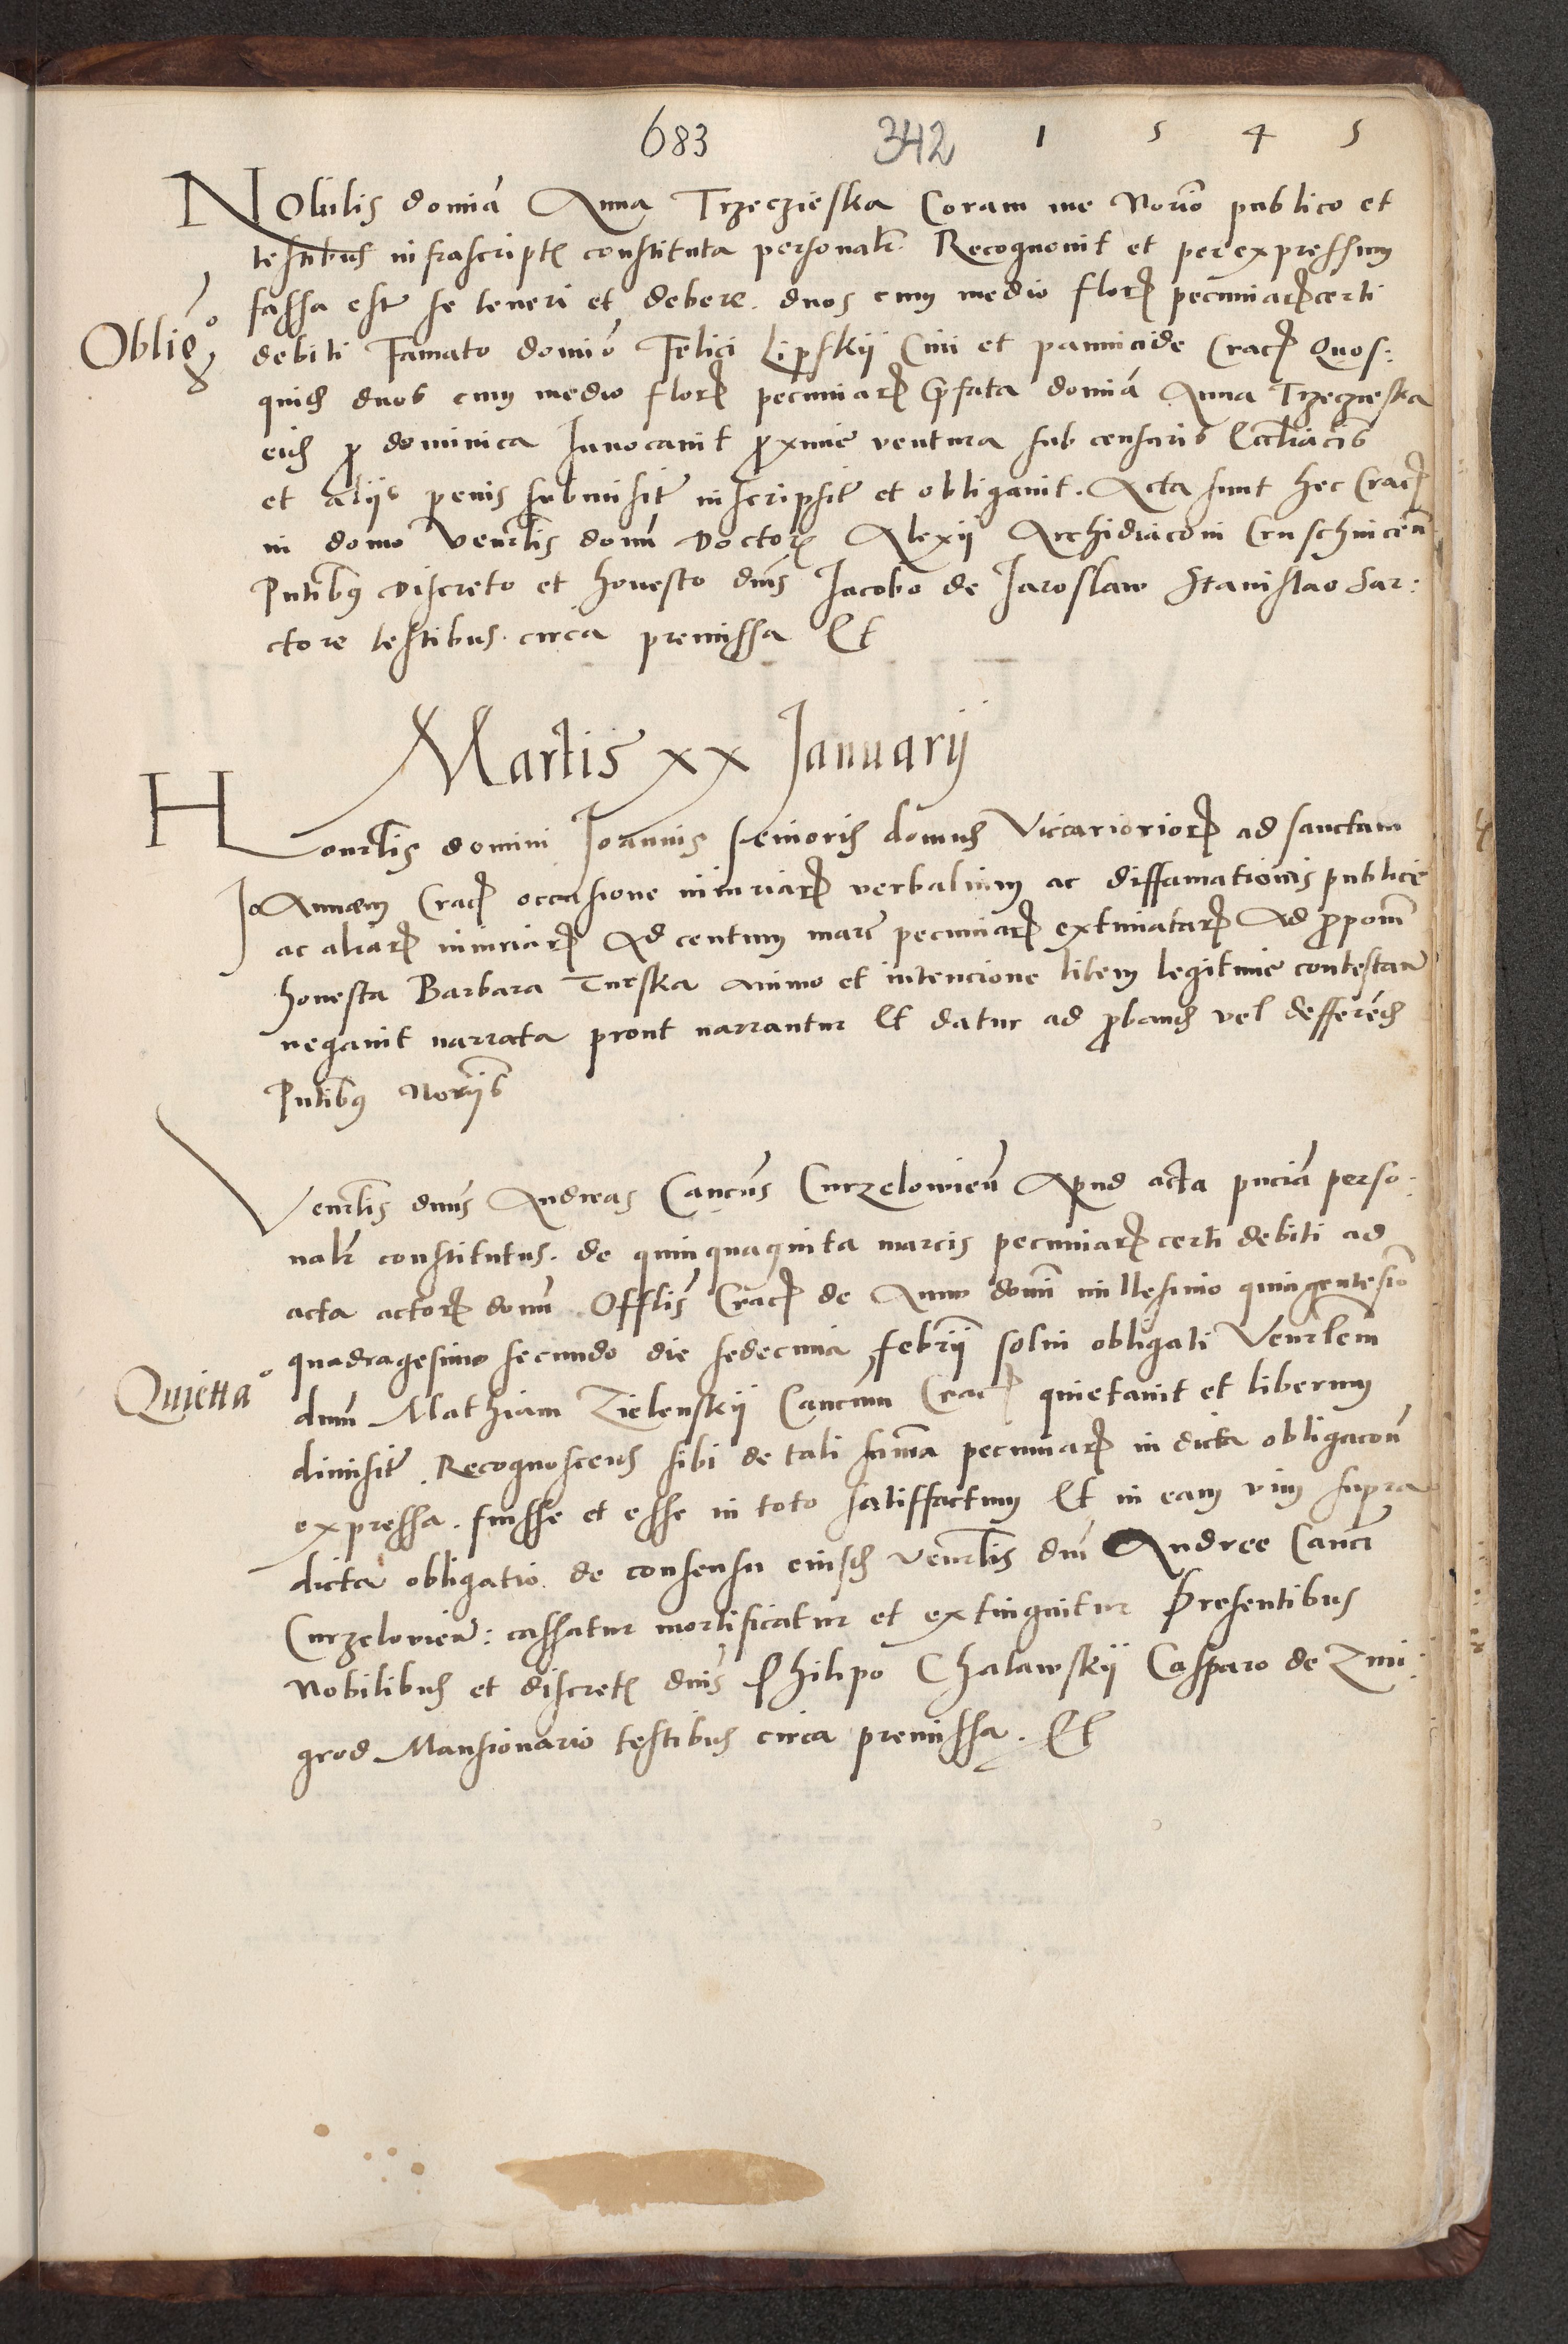 683 342 1 5 4 5
Nobilis domina Anna Trzeczieska Coram me Norio publico et
testibus infrascriptis constituta personalr Recognovit et per expressum
fassa est se teneri et debere duos cum medio flor pecuniar certi
Obligo
debiti Famato domino Felici Lipskij Civi et pannicide Crac Quos:
quid duos cum medio flor pecuniar prefata domina Anna Trzeczieska
eid pro dominica Invocavit proxime ventura sub censuris Ecclracis
et aliis penis submisit inscripsit et obligavit. Acta sunt hec Crac
in domo Venrlis domni Doctoris Alexij Archidiaconi Cruschvicen
Pntibus discreto et honesto dnis Jacobo de Jaroslaw Stanislao Sar:
ctore testibus circa premissa Et
Martis xx Januarij
Honrlis domini Joannis senioris domus Vicariorior ad sanctam
Annam Crac occasione iniuriar verbalium ac diffamationis publice
ac aliar iniuriar Ad centum marc pecuniar extimatar Ad propom
honesta Barbara Turska animo et intencione litem legitime contestan
negavit narrata prout narrantur Et datur ad proband vel defferend
Pntibus Norijs
Venrlis dnus Andreas Cancus Curzelovien Apud acta pncia perso:
nalr constitutus. de quinquaginta marcis pecuniar certi debiti ad
acta actor domni Offlis Crac de Anno domi millesimo quingentesio
quadragesimo secundo die sedecima febrii solvi obligati Venrlem
Quietta
dnum Mathiam Zielenskij Cancum Crac quietavit et liberum
dimisit. Recognoscens sibi de tali suma pecuniar in dicta obligacon
expressa. fuisse et esse in toto satisfactum Et in eam vim supra
dicta obligatio de consensu eiusd Venrlis dni Andree Canci
Curzelovien: cassatur mortificatur et extinguitur Presentibus
Nobilibus et discretis dnis Philipo Chalawskij Casparo de Zmi:
grod Mansionario testibus circa premissa. Et